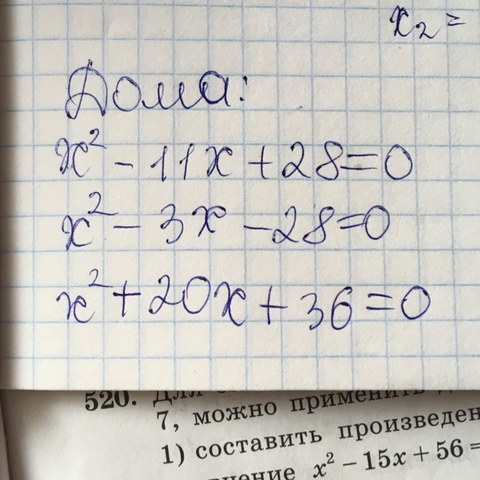 x₂ =
Дома:
x² - 11x + 28 = 0
x² - 3x - 28 = 0
x² + 20x + 36 = 0
520.
7, можно применить
1) составить произведен
x² − 15x + 56 =